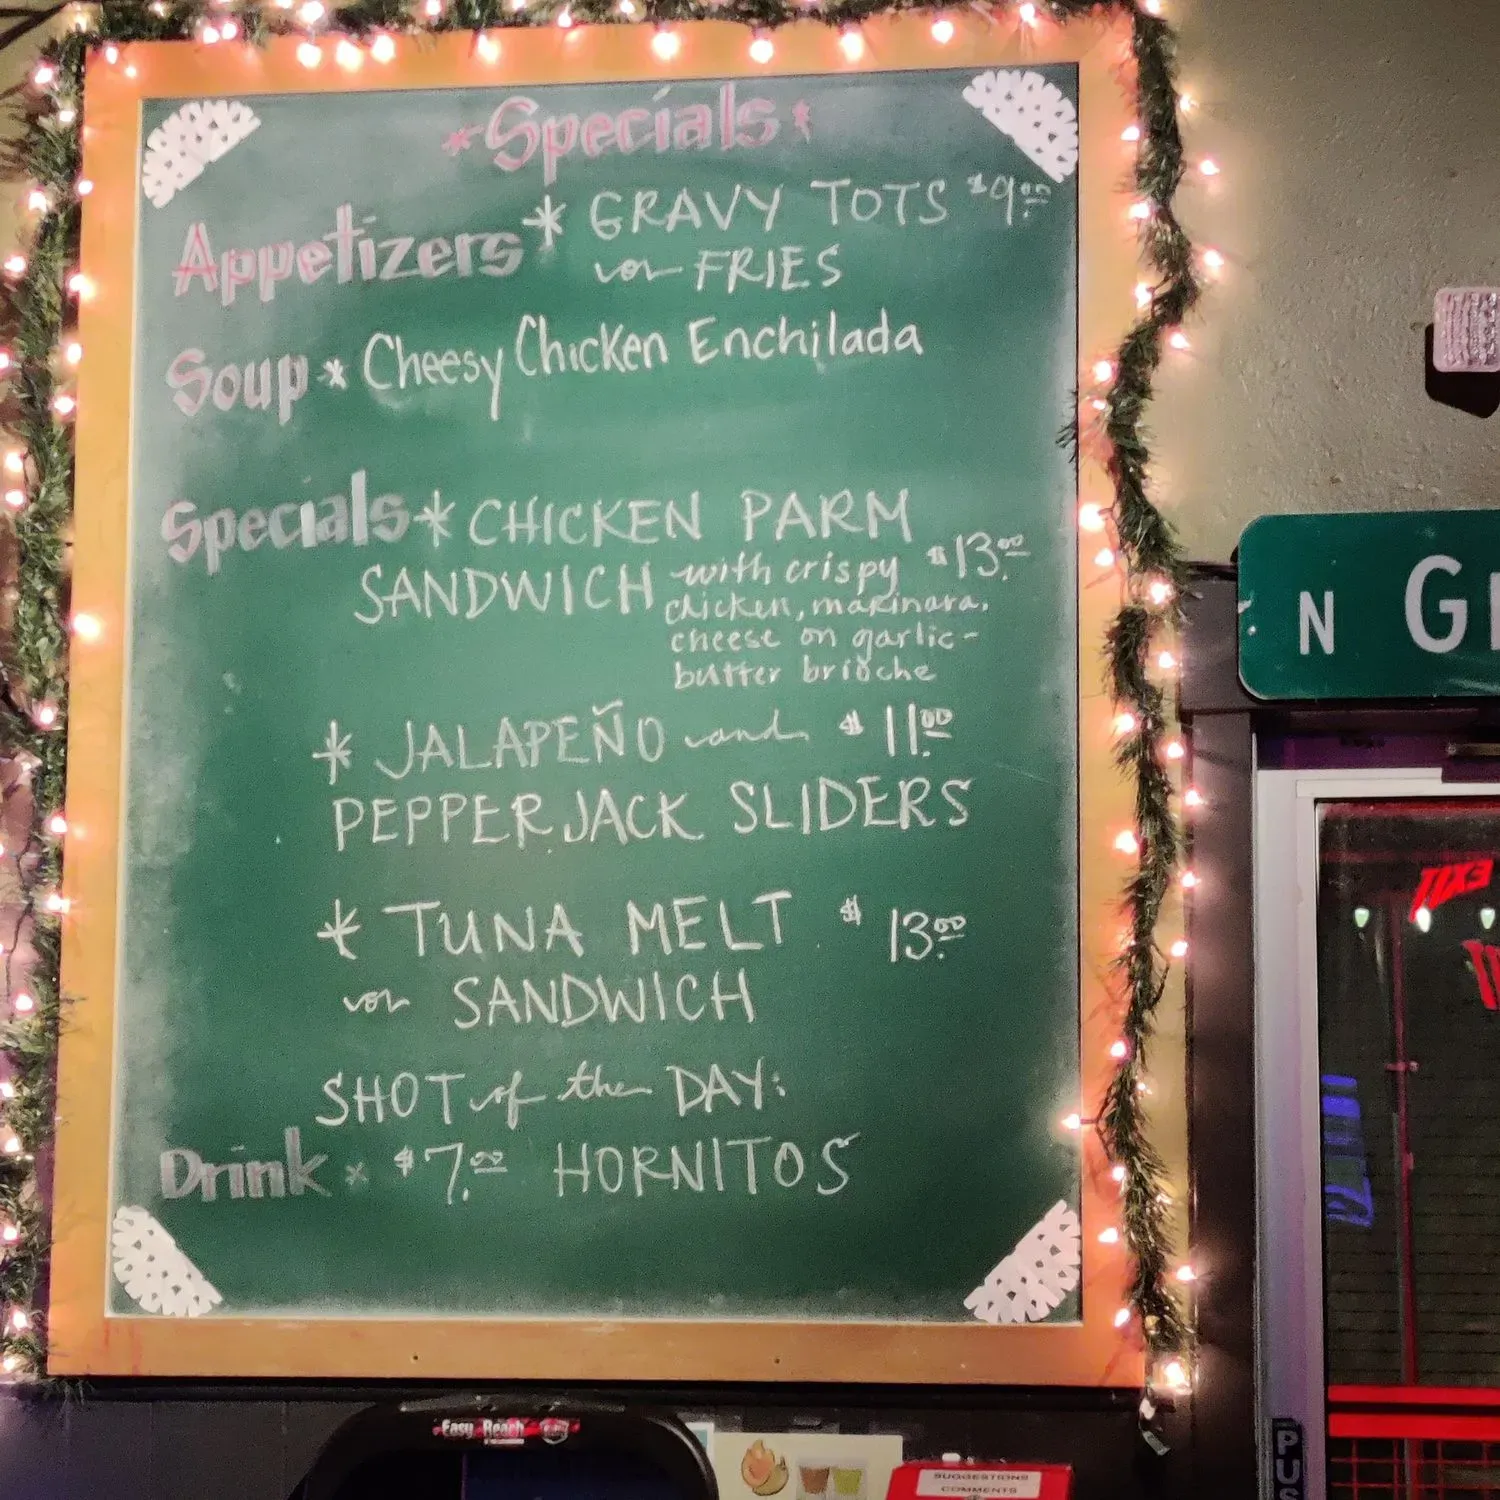 *Specials*
Appetizers * GRAVY TOTS $9.00
or FRIES
Soup * Cheesy Chicken Enchilada
Specials * CHICKEN PARM
SANDWICH with crispy $13.00
chicken, marinara,
cheese on garlic-
butter brioche
* JALAPEÑO and $11.00
PEPPERJACK SLIDERS
* TUNA MELT $13.00
or SANDWICH
SHOT of the DAY:
Drink * $7.00 HORNITOS
N G
EXIT
PUS
Easy Reach
SUGGESTIONS
COMMENTS